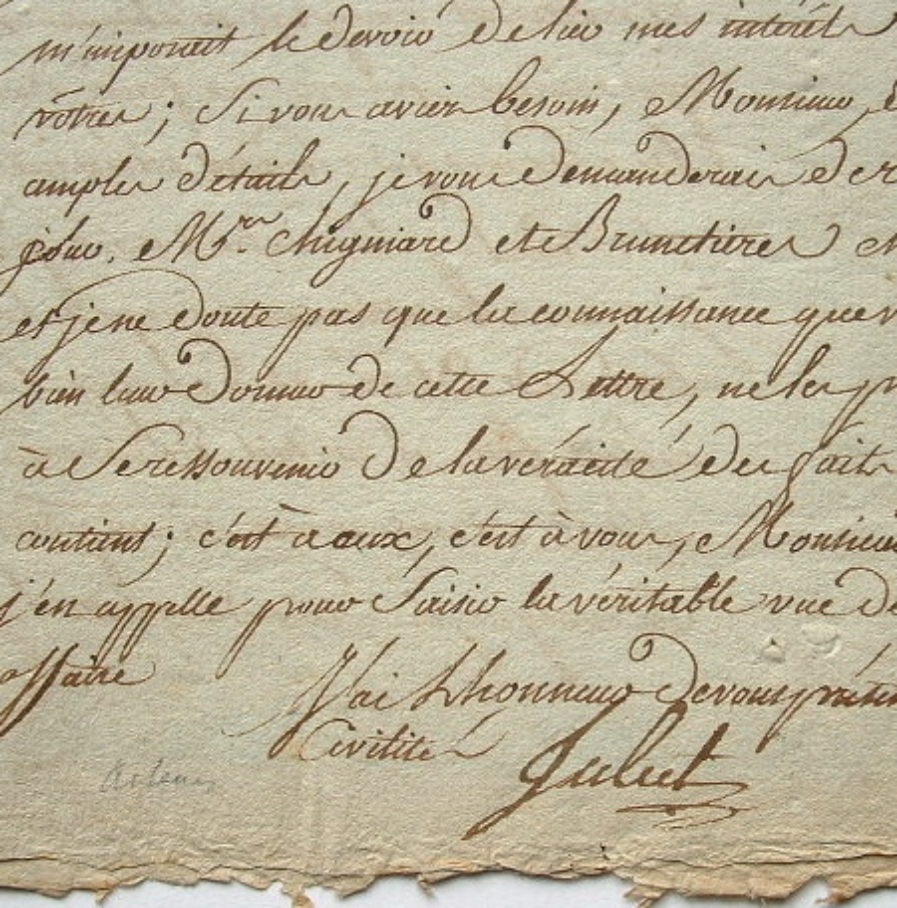 m'imposait le devoir de lier mes intérêts
vôtres; Si vous aviez besoin, Monsieur,
amples détails, je vous demanderais de
Mrs. Chigniard et Brunetieres
et je ne doute pas que la connaissance que
bien leur donner de cette Lettre, ne les
à Se ressouvenir de la véracité des faits
contient; c'est à eux, c'est à vous, Monsieur
j'en appelle pour Saisir la véritable vue de
affaire
J'ai L'honneur de vous
Civilités